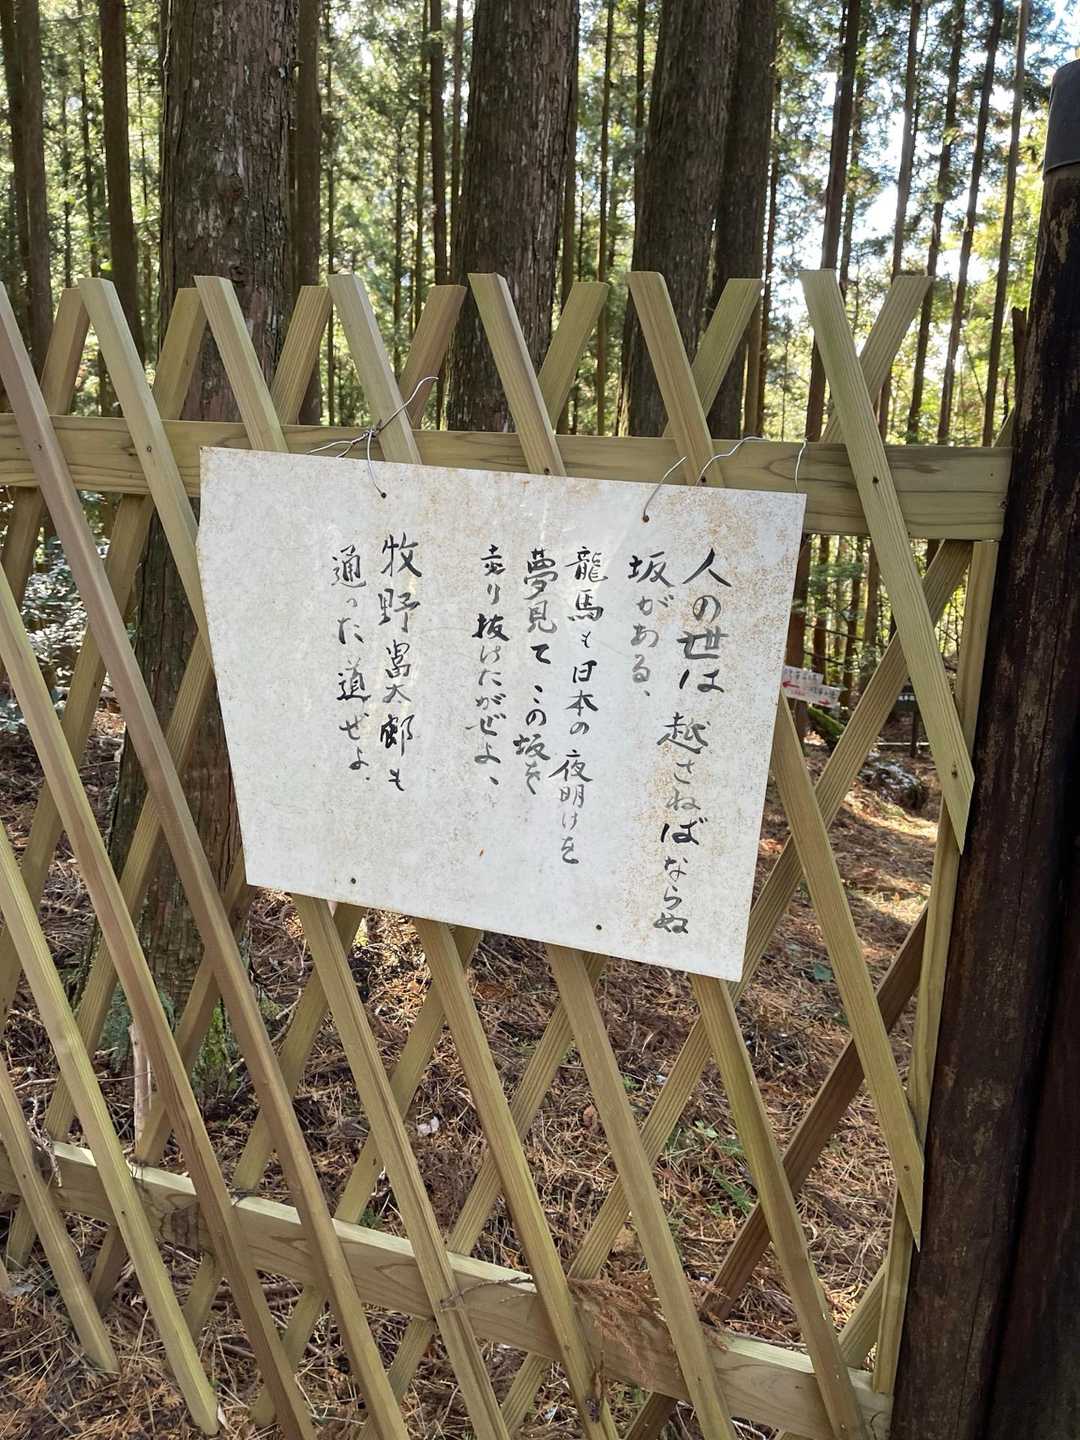 人の世は越さねばならぬ
坂がある、
龍馬も日本の夜明けを
夢見てこの坂を
走り抜けたがぜよ、
牧野富太郎も
通った道ぜよ、